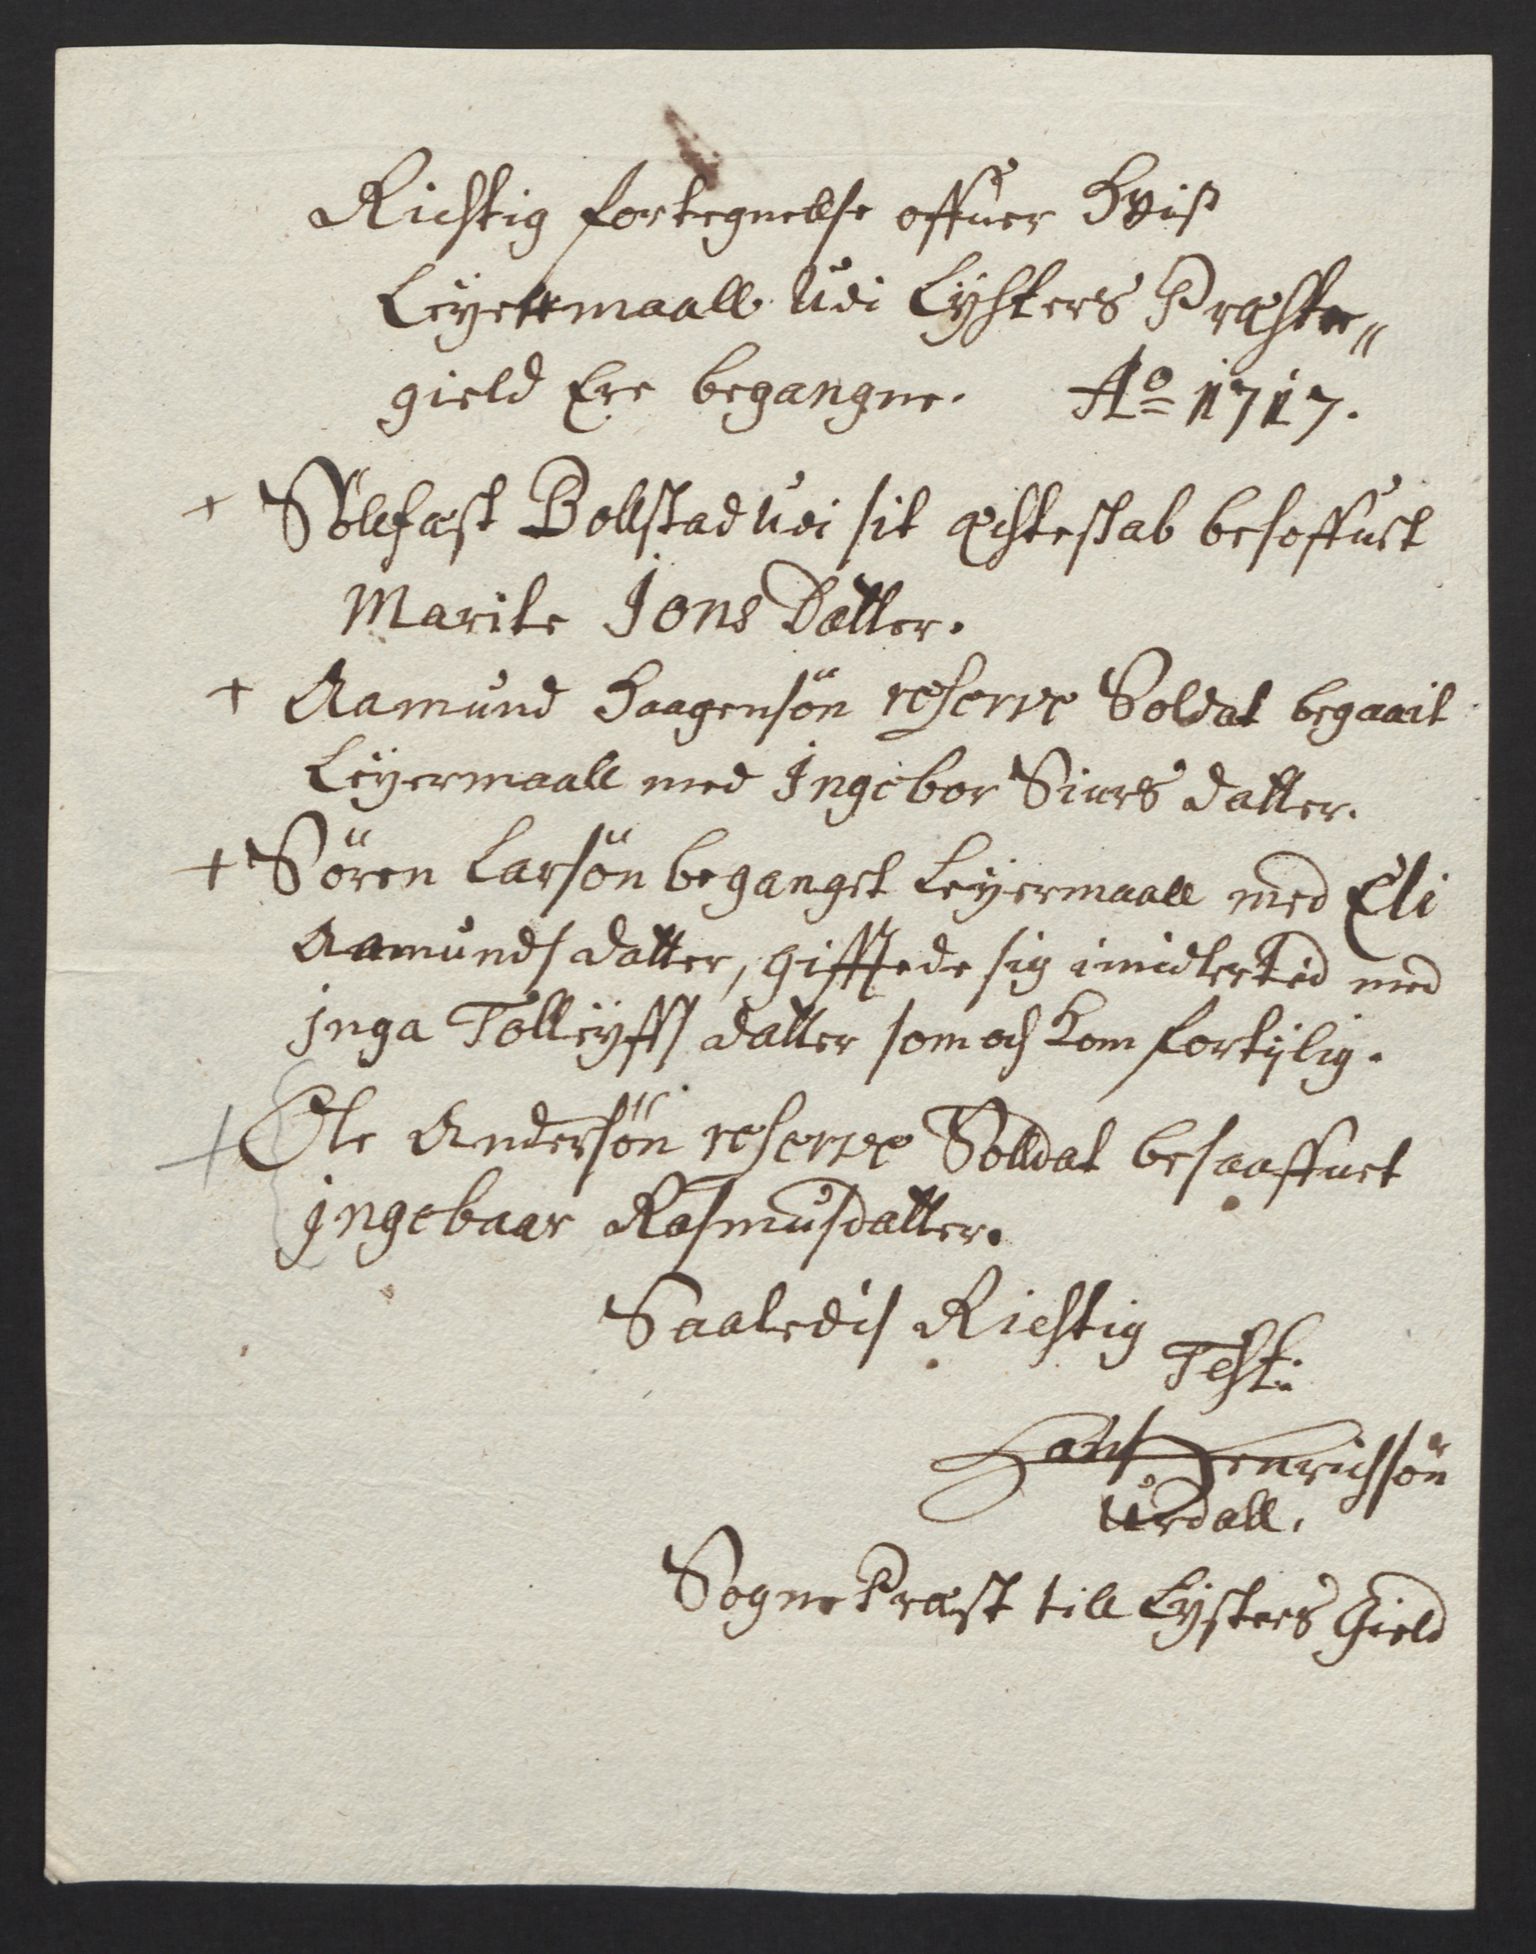 Richtig fortegnellse offuer Hviß
Leyermaall Udi Lysters Præste„
gield Ere begangne. Ao 1717.
+ Sölfæst Bollstad Udi sit æchteskab besoffuet
Marite Jons Datter.
+ Aamund Haagensön reserve Soldat begaait
Leyermaall med Ingebor Siurs datter.
+ Sören Larsön beganget Leyermaall med Eli
Aamunds datter, gifftede sig imidlertid med
Inga Tolleyffs datter som och kom fortylig.
+ Ole Andersön reserve Solldat besaaffuet
Ingebaar Rasmusdatter.
Saaledis Richtig
Test:
Hans Henrichsön
Urdall.
Sogne Præst till Lysters Gield